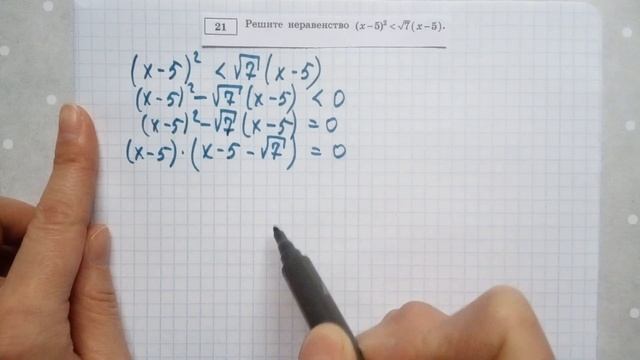 21 Решите неравенство (x−5)² < √7(x−5).
(x−5)² < √7 (x−5)
(x−5)² − √7 (x−5) < 0
(x−5)² − √7 (x−5) = 0
(x−5)·(x−5−√7) = 0